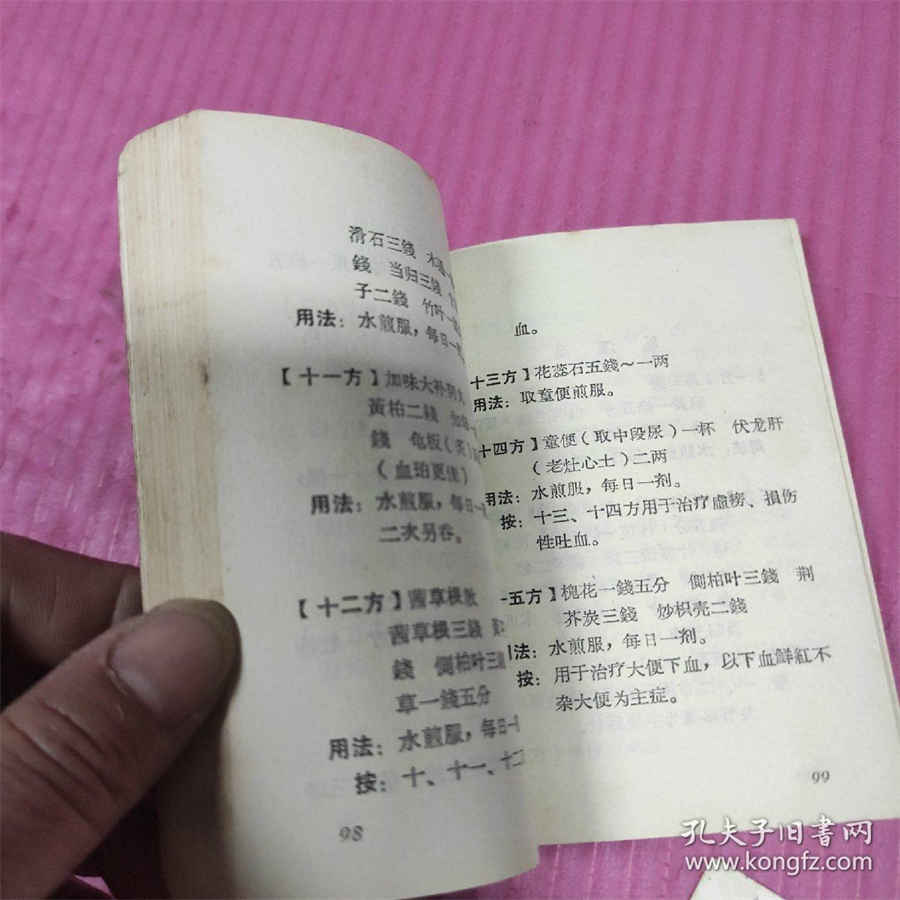 滑石三錢 木通
錢 当归三錢
子二錢 竹叶一
用法：水煎服，每日一剂
【十一方】加味大补阴丸
黃柏二錢 知母
錢 龟板（炙）
（血珀更佳）
用法：水煎服，每日一
二次另吞。
【十二方】茜草根散
茜草根三錢
錢 側柏叶三
草一錢五分
用法：水煎服，每日一
按：十、十一、十二
98
血。
十三方】花蕊石五錢～一两
用法：取童便煎服。
十四方】童便（取中段尿）一杯 伏龙肝
（老灶心土）二两
用法：水煎服，每日一剂。
按：十三、十四方用于治疗虛痨、損伤
性吐血。
五方】槐花一錢五分 側柏叶三錢 荆
芥炭三錢 炒枳壳二錢
用法：水煎服，每日一剂。
按：用于治疗大便下血，以下血鮮紅不
杂大便为主症。
99
孔夫子旧書网
www.kongfz.com